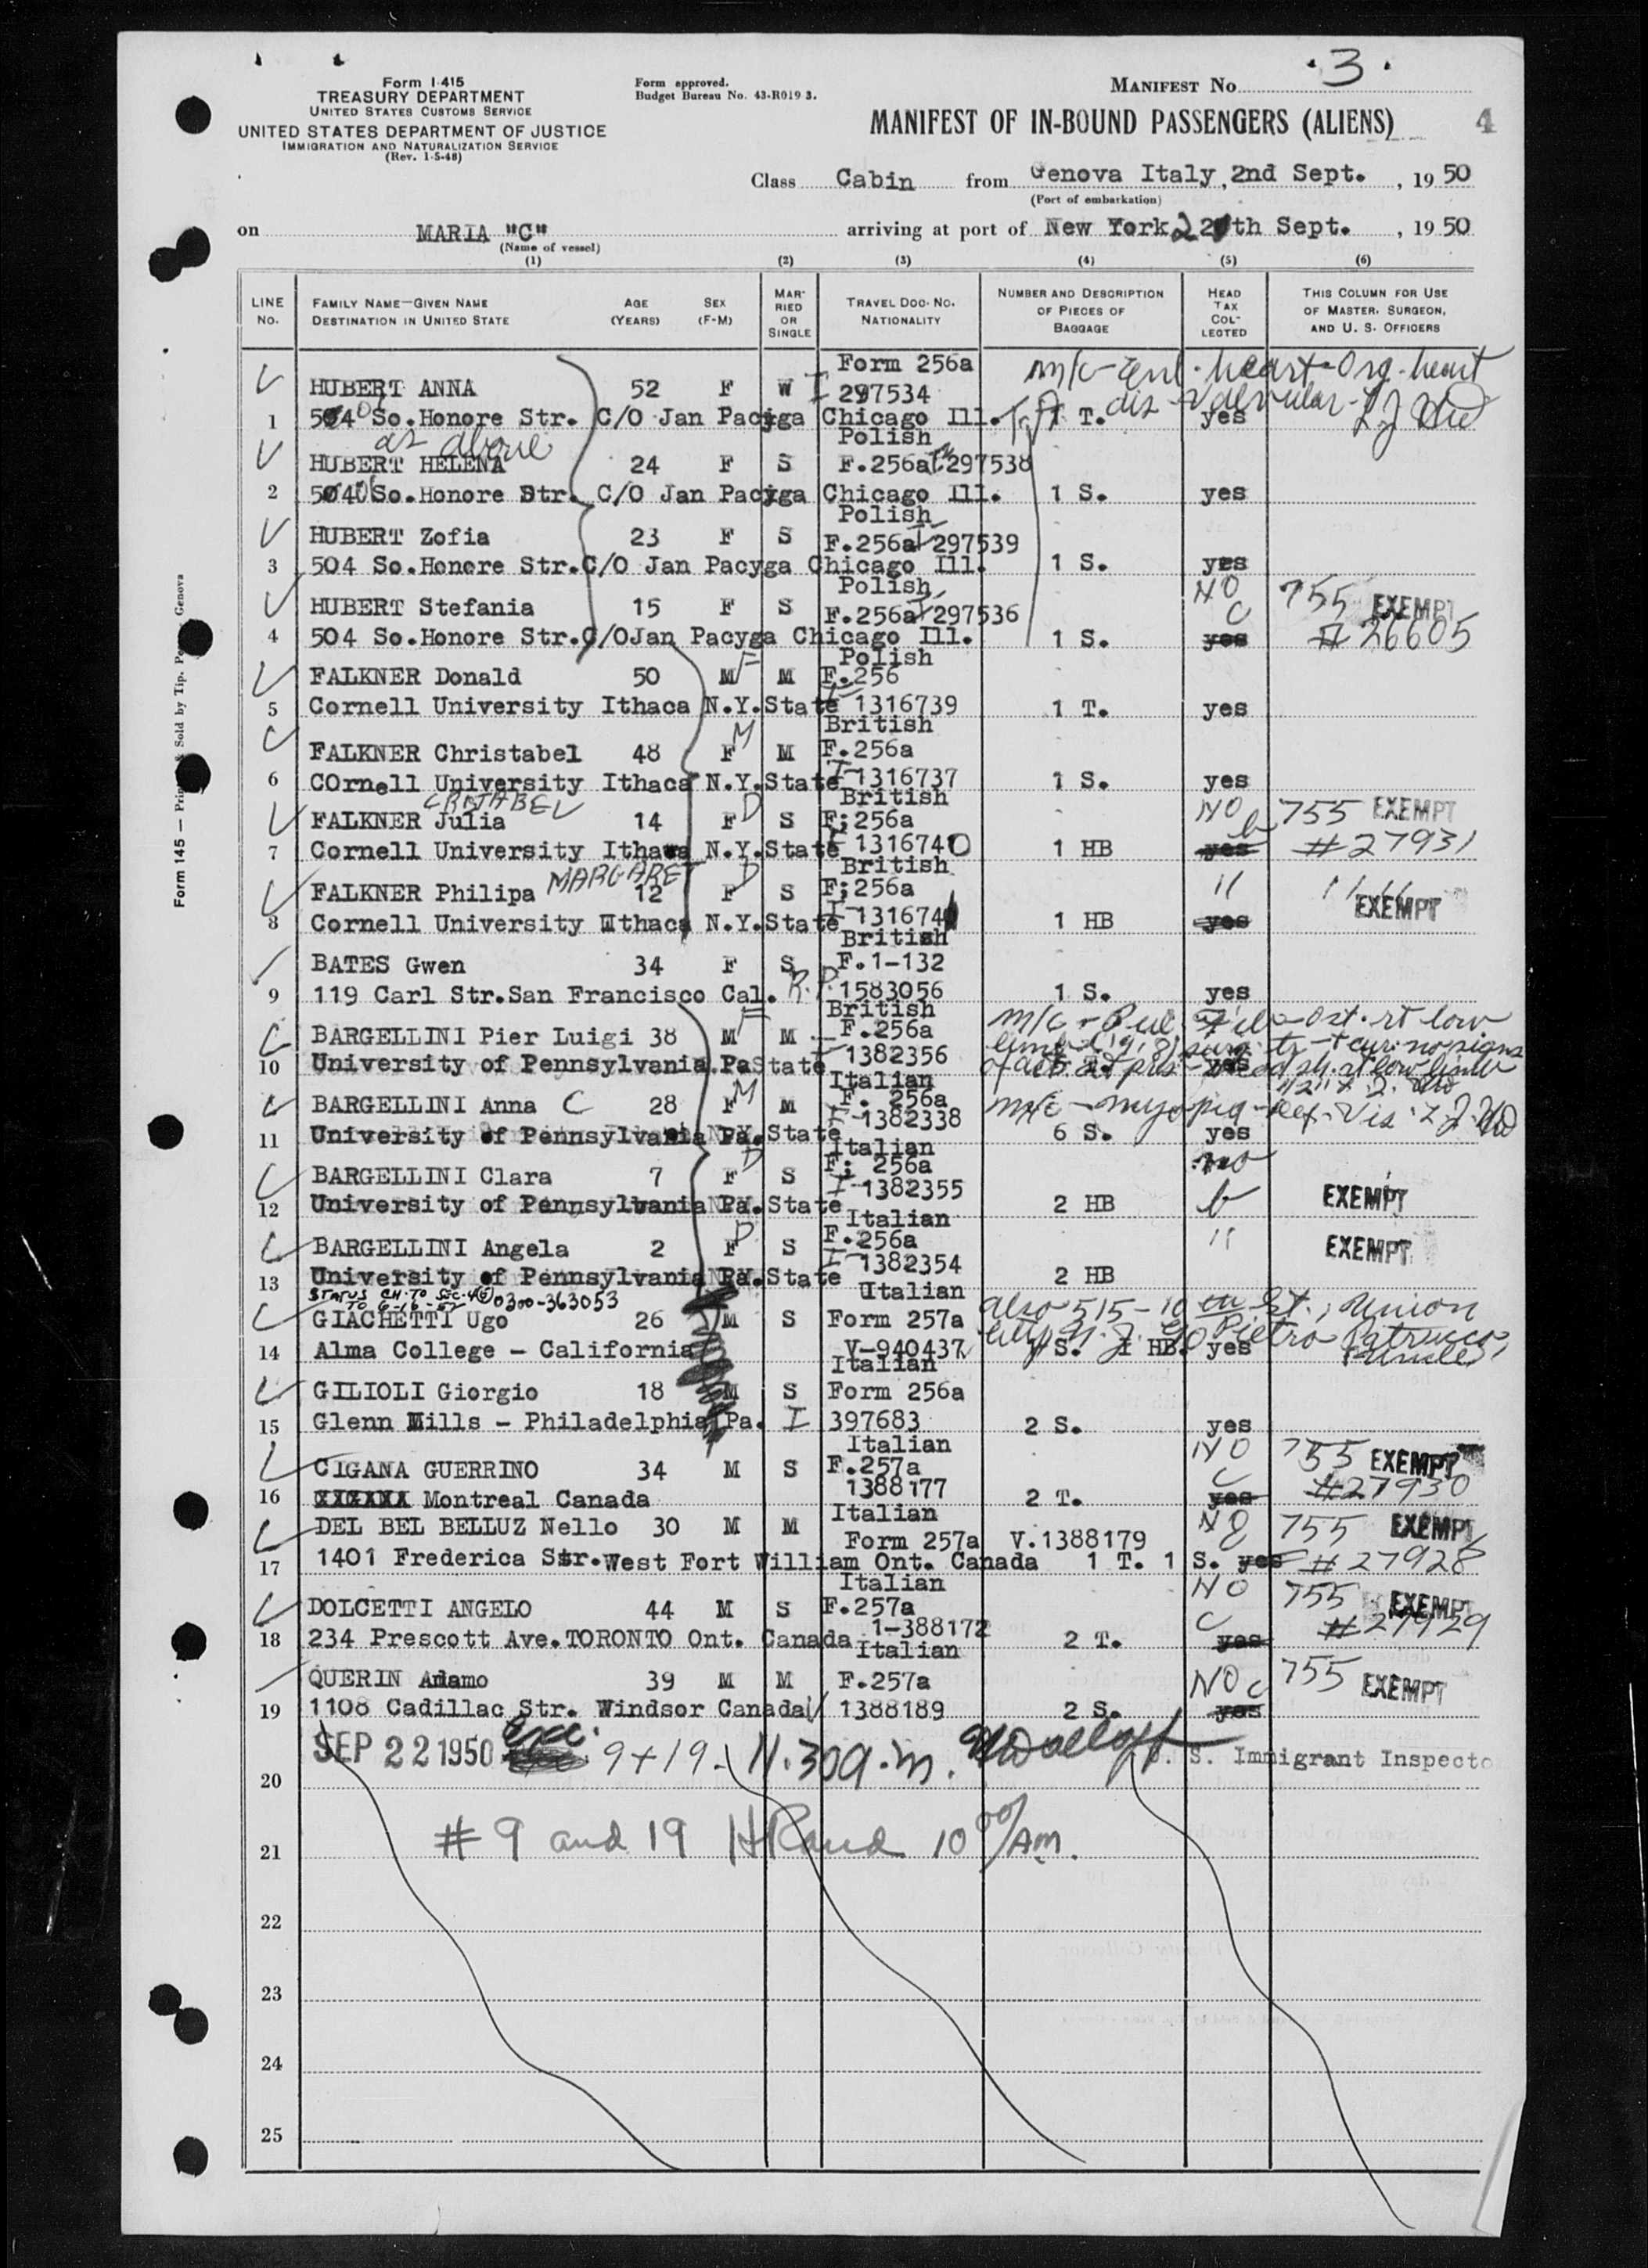 Form I-415
TREASURY DEPARTMENT
UNITED STATES CUSTOMS SERVICE
UNITED STATES DEPARTMENT OF JUSTICE
IMMIGRATION AND NATURALIZATION SERVICE
(Rev. 1-5-48)
Form approved.
Budget Bureau No. 43-R019 3.
MANIFEST No. 3
MANIFEST OF IN-BOUND PASSENGERS (ALIENS) 4
Class Cabin from Genova Italy, 2nd Sept. , 19 50
(Port of embarkation)
on MARIA "C" arriving at port of New York 22th Sept. , 19 50
(Name of vessel)
(1) (2) (3) (4) (5) (6)
LINE NO. FAMILY NAME—GIVEN NAME DESTINATION IN UNITED STATE AGE (YEARS) SEX (F-M) MARRIED OR SINGLE TRAVEL DOC. NO. NATIONALITY NUMBER AND DESCRIPTION OF PIECES OF BAGGAGE HEAD TAX COLLECTED THIS COLUMN FOR USE OF MASTER, SURGEON, AND U. S. OFFICERS
Form 256a
HUBERT ANNA 52 F W I 297534
1 5040 So.Honore Str. C/O Jan Pacyga Chicago Ill. 1 T. yes
as above Polish
HUBERT HELENA 24 F S F.256a 297538
2 5040 So.Honore Str. C/O Jan Pacyga Chicago Ill. 1 S. yes
Polish
HUBERT Zofia 23 F S F.256a 297539
3 504 So.Honore Str.C/O Jan Pacyga Chicago Ill. 1 S. yes
Polish NO 755 EXEMPT
HUBERT Stefania 15 F S F.256a 297536 C
4 504 So.Honore Str.C/OJan Pacyga Chicago Ill. 1 S. yes # 26605
Polish
FALKNER Donald 50 M M F.256
5 Cornell University Ithaca N.Y.State 1316739 1 T. yes
British
FALKNER Christabel 48 F M M F.256a
6 COrnell University Ithaca N.Y.State I-1316737 1 S. yes
British NO 755 EXEMPT
FALKNER Julia 14 F D S F;256a
7 Cornell University Ithaca N.Y.State 1316740 1 HB yes # 27931
MARGARET British
FALKNER Philipa 12 F D S F;256a 11 EXEMPT
8 Cornell University Ithaca N.Y.State 1 HB yes
British
BATES Gwen 34 F S F.1-132
9 119 Carl Str.San Francisco Cal. R.P. 1583056 1 S. yes
British
BARGELLINI Pier Luigi 38 M M F.256a
10 University of Pennsylvania.PaState 1382356 yes
Italian
BARGELLINI Anna C 28 F M M F. 256a
11 University of Pennsylvania Pa.State I-1382338 6 S. yes
Italian no
BARGELLINI Clara 7 F D S F; 256a
12 University of Pennsylvania Pa.State I-1382355 2 HB b EXEMPT
Italian
BARGELLINI Angela 2 F D S F.256a 11 EXEMPT
13 University of Pennsylvania Pa.State I-1382354 2 HB
STATUS CH. TO SEC. 4(e) 0300-363053 Italian
TO 6-16-52
GIACHETTI Ugo 26 M S Form 257a also 515-10th St., Union
14 Alma College - California V-940437 1 S. 1 HB. yes
Italian
GILIOLI Giorgio 18 M S Form 256a
15 Glenn Mills - Philadelphia Pa. I 397683 2 S. yes
Italian NO 755 EXEMPT
CIGANA GUERRINO 34 M S F.257a C
16 Montreal Canada 1388177 2 T. yes #27930
Italian
DEL BEL BELLUZ Nello 30 M M Form 257a V.1388179 NO 755 EXEMPT
17 1401 Frederica Str.West Fort William Ont. Canada 1 T. 1 S. yes # 27928
Italian NO 755 EXEMPT
DOLCETTI ANGELO 44 M S F.257a C
18 234 Prescott Ave.TORONTO Ont. Canada 1-388172 2 T. yes #27929
Italian
QUERIN Adamo 39 M M F.257a NO C 755 EXEMPT
19 1108 Cadillac Str. Windsor Canada V 1388189 2 S. yes
SEP 22 1950 exc. 9+19 - 11.30a.m. U. S. Immigrant Inspecto
20
21 # 9 and 19 10 00/AM.
22
23
24
25
Genova